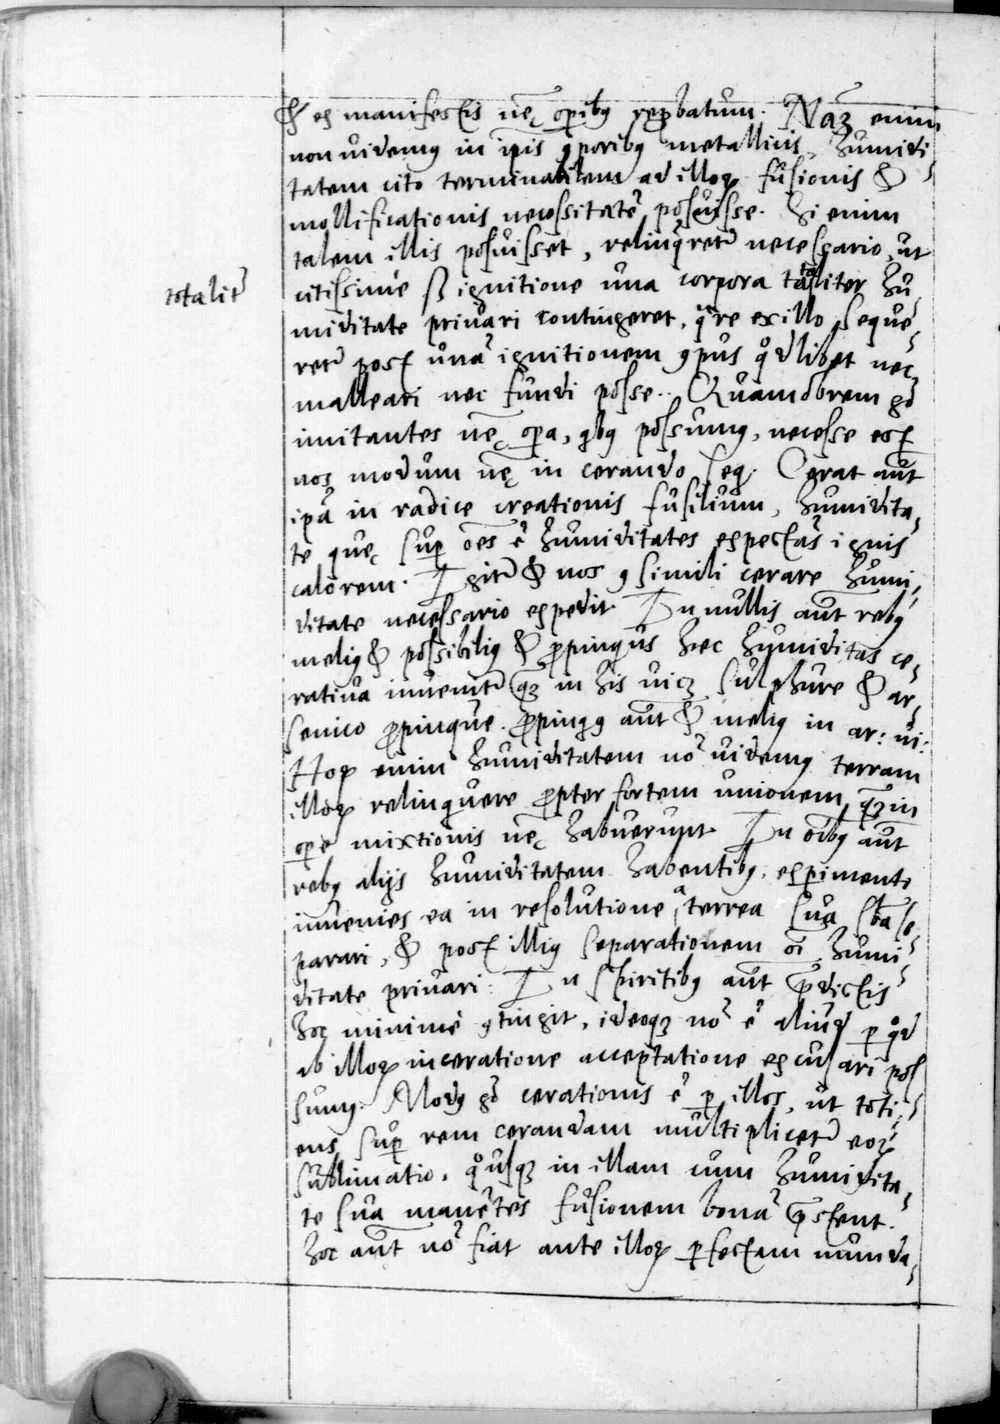 & ex manifestis nrę opibq repbatum. Naʒ enim
non videmq in ipis ꝯporibq metallinis, humidi-
tatem cito terminabilem ad illoꝝ fusionis &
mollificationis necessitatē posuisse. Si enim
talem illis posuisset, relinqretr necessario, ut
totalitr
citissimè sb ignitione una corpora taliter hu
miditate privari contingeret, qre ex illo seque-
retr post unā ignitionem ꝯpus qodlibet nec
malleari nec fundi posse. Quamobrem gº
imitantes nrę opa, qbq possumq, necesse est
nos modum nrę in cerando seq. Cerat aut
ipā in radice creationis fusilium, humidita-
te quę sup oēs ē humiditates expectās ignis
calorem. Igitr & nos ꝯ simili cerare humi-
ditate necessario expedit. In nullis aut rebq
meliq & possibiliq & ꝓpinquius hec humiditas ce-
rativa invenitr qʒ in his vicʒ sulphure & ar-
senico ꝓpinque. ꝓpinqq aut & meliq in ar: vi:
Hoꝝ enim humiditatem nō videmq terram
illoꝝ relinquere ꝓpter fortem unionem, quʒ in
ope mixtionis nrę habuerunt. In oībq aut
rebq alijs humiditatem habentibq, expimento
invenies ea in resolutione a terrea sua sba se-
parari, & post illiq separationem oī humi-
ditate privari: In spiritibq aut pdictis
hoc minimè ꝯtingit, ideoqʒ nō ē aliud p qod
ab illoꝝ inceratione acceptatione excusari pos
sumq. Modq gº cerationis ē p illos, ut toti-
ens sup rem cerandam multiplicetr eoꝝ
sublimatio, qousqʒ in illam cum humidita-
te sua manētes fusionem bonā pstent.
hoc aut nō fiat ante illoꝝ pfectam munda-